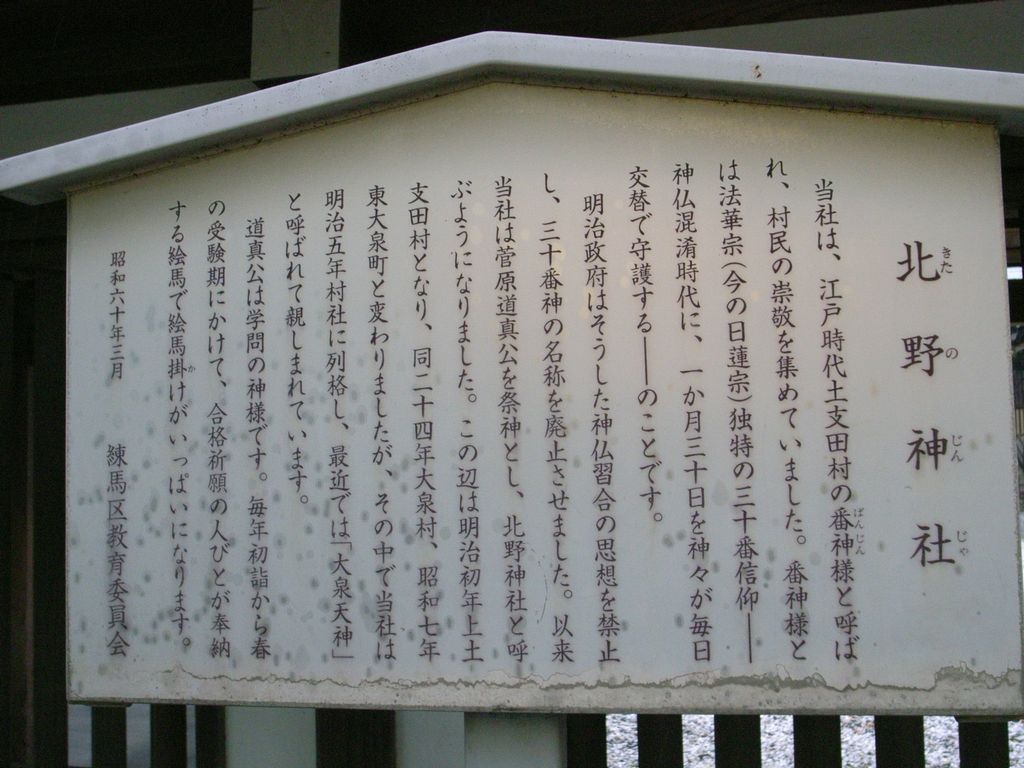 北野神社
当社は、江戸時代土支田村の番神様と呼ば
れ、村民の崇敬を集めていました。番神様と
は法華宗(今の日蓮宗)独特の三十番信仰――
神仏混淆時代に、一か月三十日を神々が毎日
交替で守護する――のことです。
明治政府はそうした神仏習合の思想を禁止
し、三十番神の名称を廃止させました。以来
当社は菅原道真公を祭神とし、北野神社と呼
ぶようになりました。この辺は明治初年上土
支田村となり、同二十四年大泉村、昭和七年
東大泉町と変わりましたが、その中で当社は
明治五年村社に列格し、最近では「大泉天神」
と呼ばれて親しまれています。
道真公は学問の神様です。毎年初詣から春
の受験期にかけて、合格祈願の人びとが奉納
する絵馬で絵馬掛けがいっぱいになります。
昭和六十年三月 練馬区教育委員会